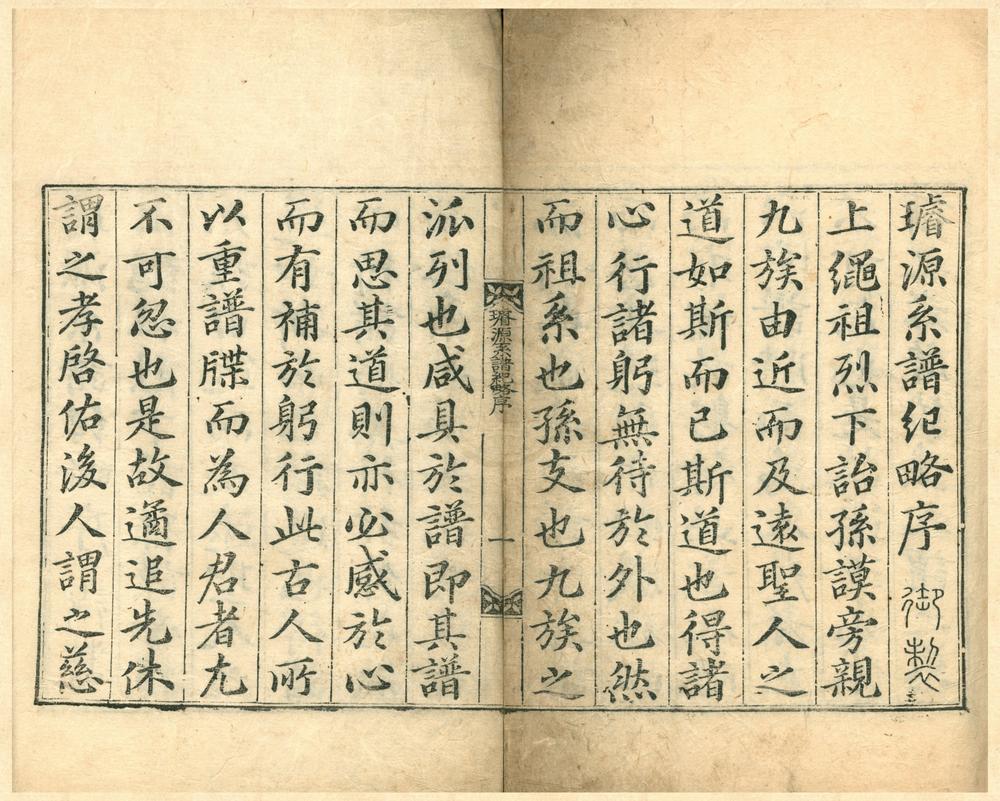 璿源系譜紀略序 御製
上繩祖烈下詒孫謨旁親
九族由近而及遠聖人之
道如斯而已斯道也得諸
心行諸躬無待於外也然
而祖系也孫支也九族之
璿源系譜紀略序 一
派列也咸具於譜即其譜
而思其道則亦必感於心
而有補於躬行此古人所
以重譜牒而為人君者尤
不可忽也是故遹追先休
謂之孝啓佑後人謂之慈